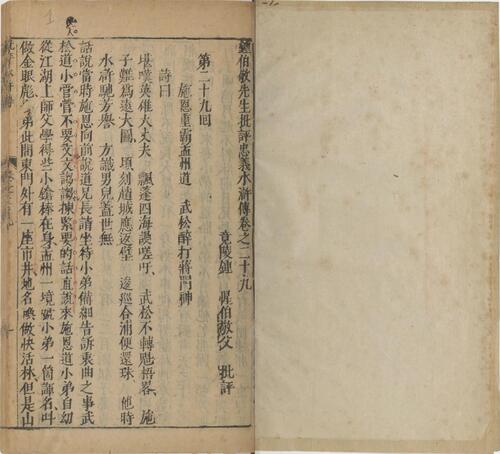 鍾伯敬先生批評忠義水滸傳卷之二十九
竟陵鍾 惺伯敬父 批評
第二十九囘
施恩重霸孟州道 武松醉打蔣門神
詩曰
堪嘆英雄大丈夫 飄蓬四海謾嗟吁 武松不轉魁梧畧 施
子難爲遠大圖 頃刻趙城應返璧 逡巡合浦便還珠 他時
水滸馳芳譽 方識男兒蓋世無
話說當時施恩向前說道兄長請坐待小弟備細告訴衷曲之事武
松道小管營不要文文謅謅揀緊要的話直說來施恩道小弟自幼
從江湖上師父學得些小鎗棒在身孟州一境號小弟一箇諢名叫
做金眼彪小弟此間東門外有一座市井地名喚做快活林但是山